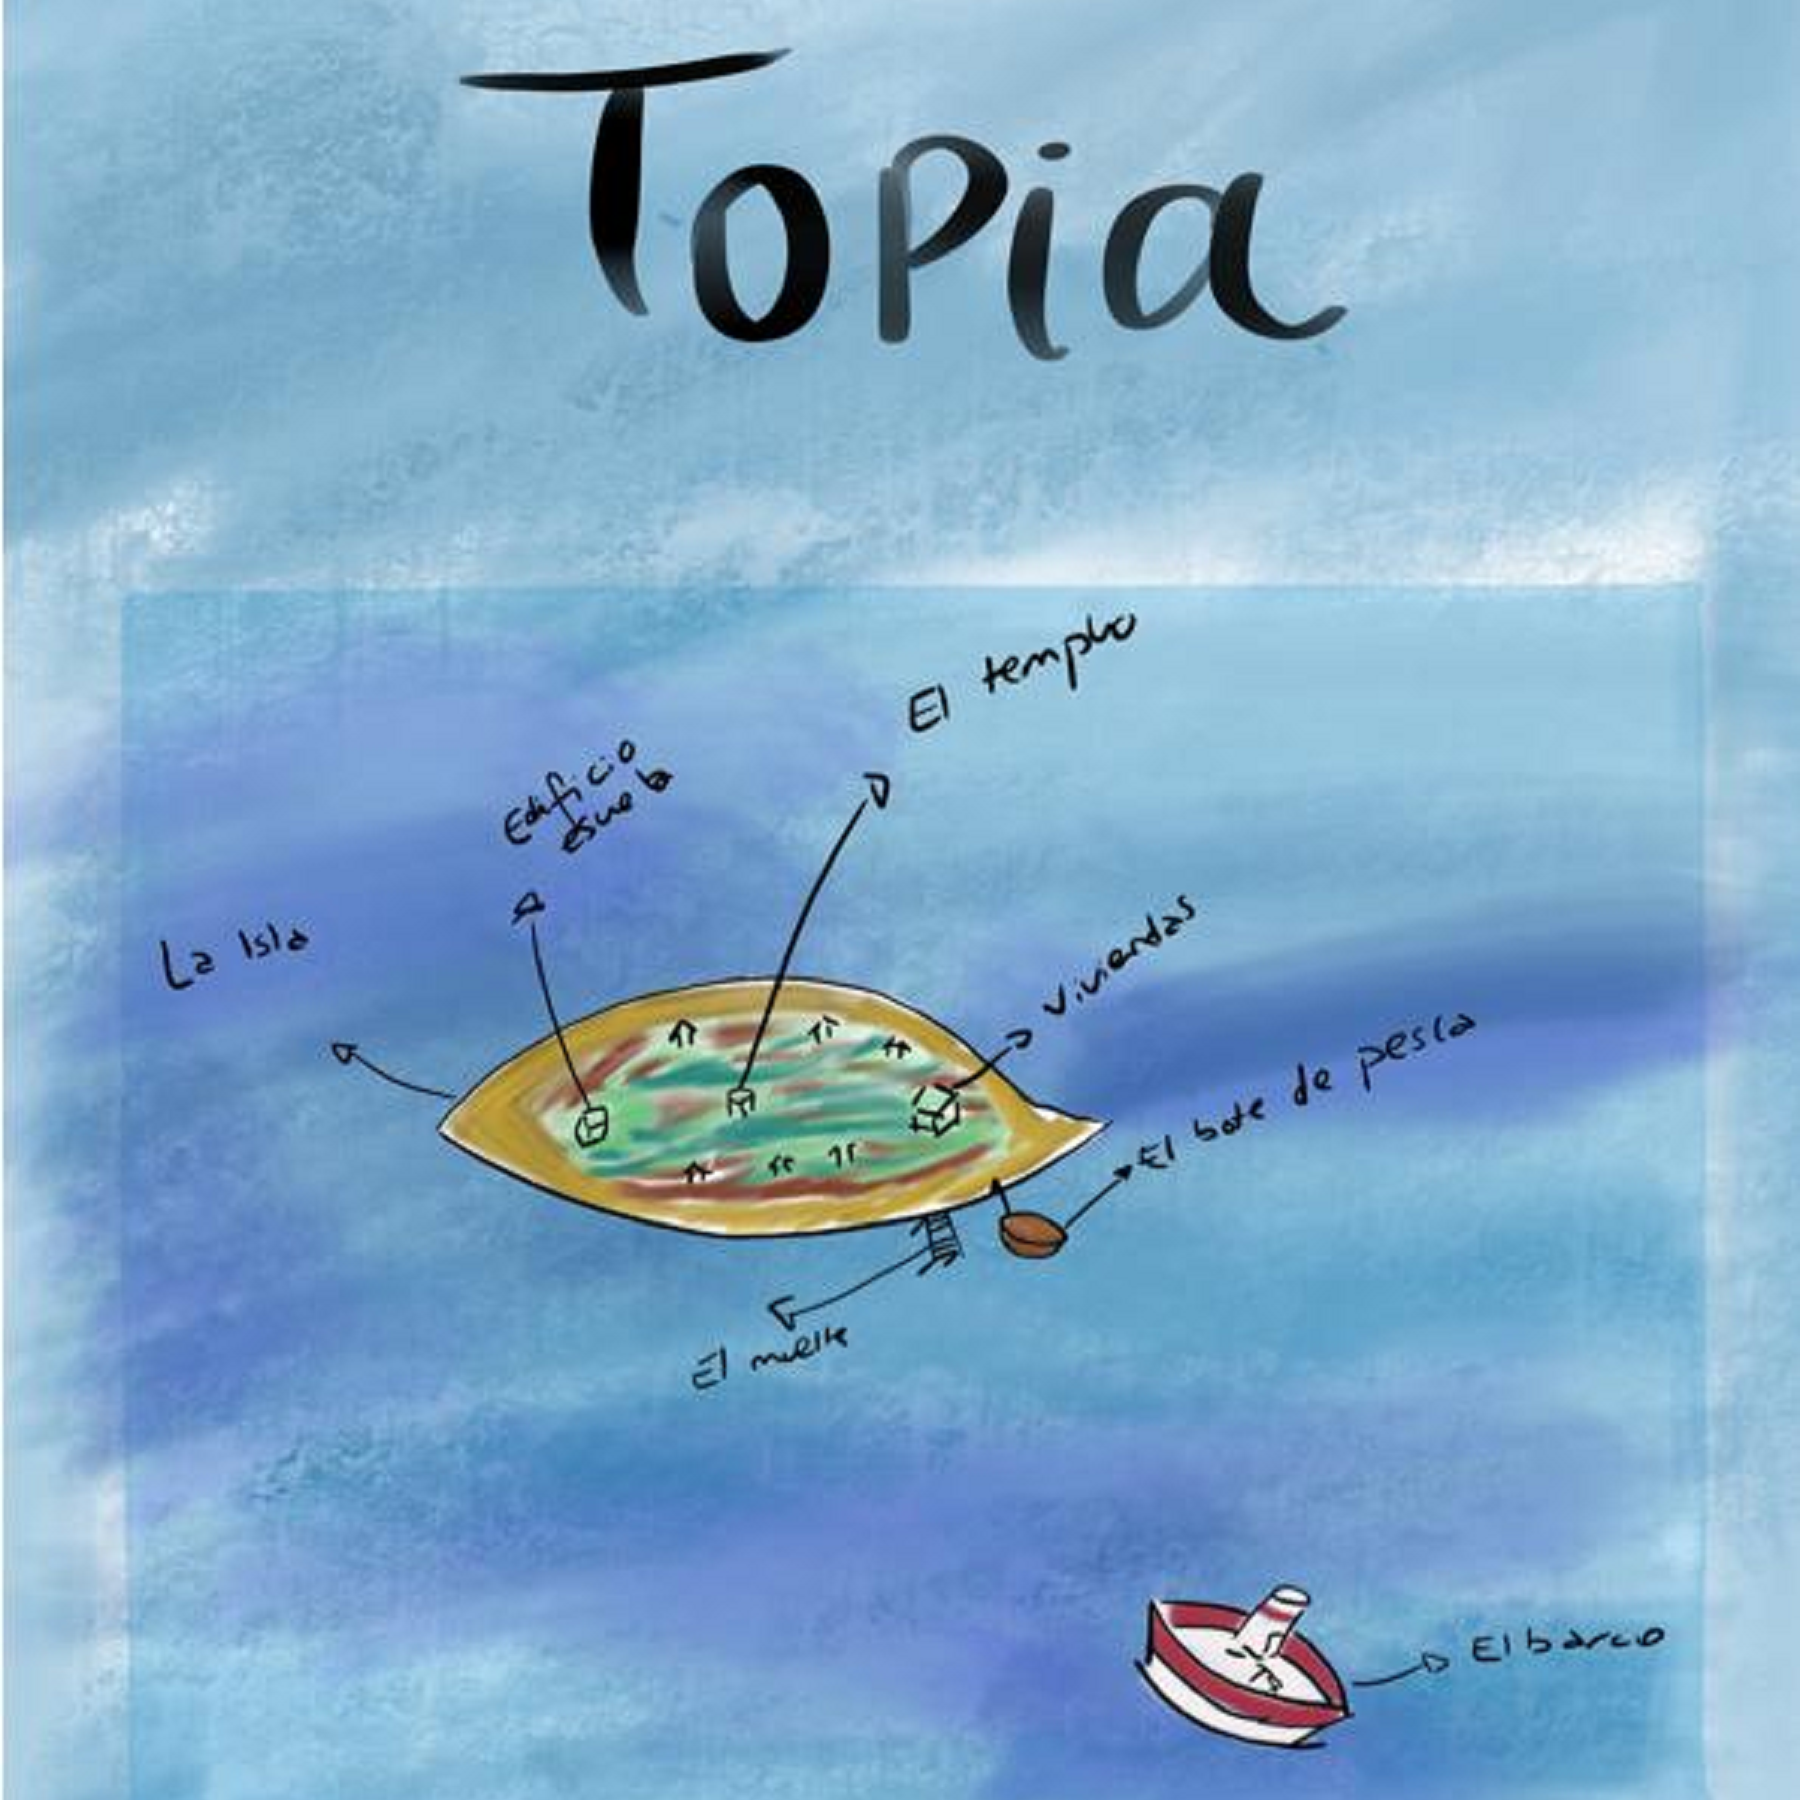 Topia
El templo
Edificio
esuela
La Isla
viviendas
El bote de pesca
El muelle
El barco